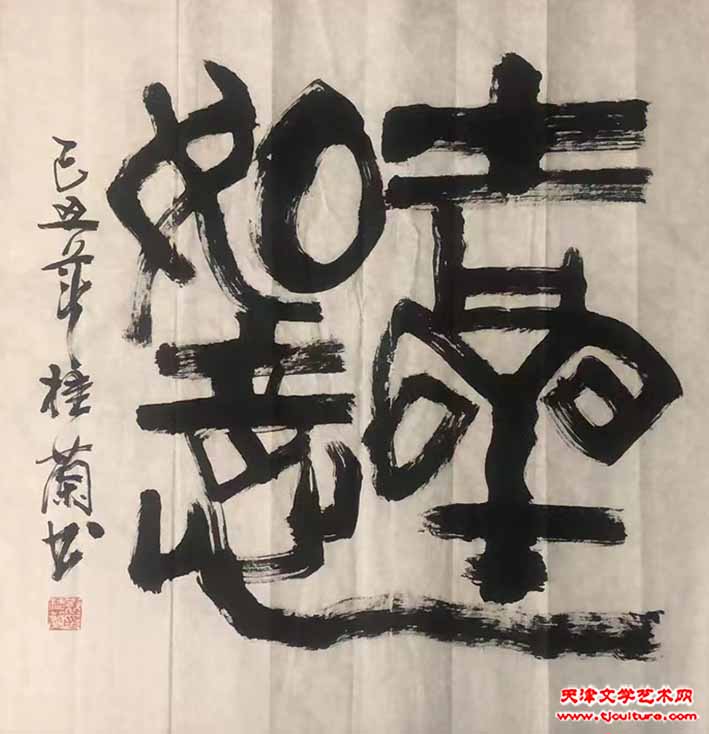 吉羊
如意
己丑年桂蘭书
天津文学艺术网
www.tjculture.com